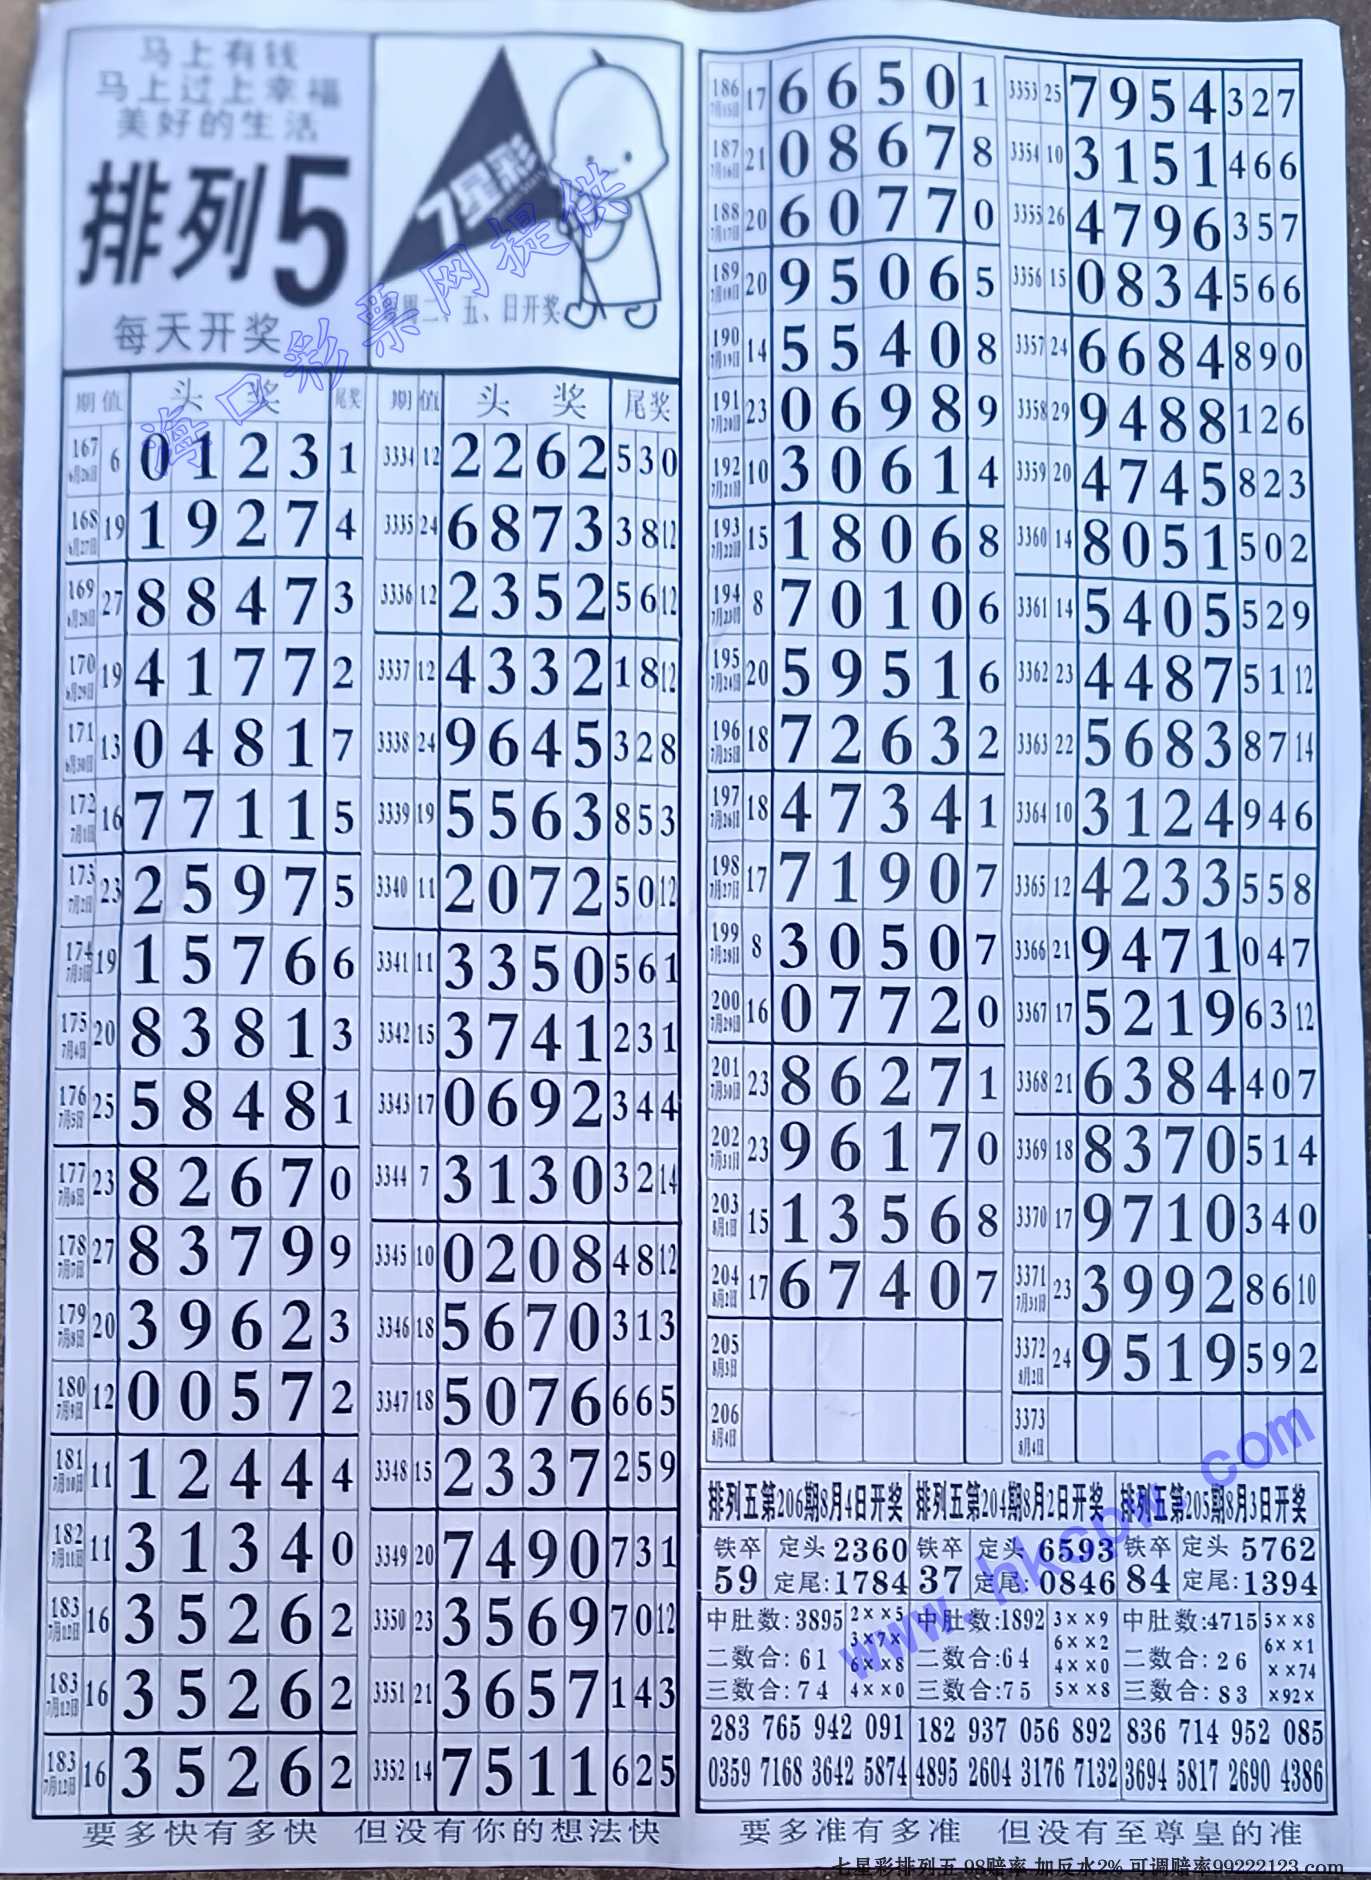 马上有钱
马上过上幸福
美好的生活
排列5
每天开奖
7星彩
周二、五、日开奖
海口彩票网提供
期 值 头 奖 尾奖
167 6月26日 6 0 1 2 3 1
168 6月27日 19 1 9 2 7 4
169 6月28日 27 8 8 4 7 3
170 6月29日 19 4 1 7 7 2
171 6月30日 13 0 4 8 1 7
172 7月1日 16 7 7 1 1 5
173 7月2日 23 2 5 9 7 5
174 7月3日 19 1 5 7 6 6
175 7月4日 20 8 3 8 1 3
176 7月5日 25 5 8 4 8 1
177 7月6日 23 8 2 6 7 0
178 7月7日 27 8 3 7 9 9
179 7月8日 20 3 9 6 2 3
180 7月9日 12 0 0 5 7 2
181 7月10日 11 1 2 4 4 4
182 7月11日 11 3 1 3 4 0
183 7月12日 16 3 5 2 6 2
183 7月12日 16 3 5 2 6 2
183 7月12日 16 3 5 2 6 2
期 值 头 奖 尾奖
3334 12 2 2 6 2 5 3 0
3335 24 6 8 7 3 3 8 12
3336 12 2 3 5 2 5 6 12
3337 12 4 3 3 2 1 8 12
3338 24 9 6 4 5 3 2 8
3339 19 5 5 6 3 8 5 3
3340 11 2 0 7 2 5 0 12
3341 11 3 3 5 0 5 6 1
3342 15 3 7 4 1 2 3 1
3343 17 0 6 9 2 3 4 4
3344 7 3 1 3 0 3 2 14
3345 10 0 2 0 8 4 8 12
3346 18 5 6 7 0 3 1 3
3347 18 5 0 7 6 6 6 5
3348 15 2 3 3 7 2 5 9
3349 20 7 4 9 0 7 3 1
3350 23 3 5 6 9 7 0 12
3351 21 3 6 5 7 1 4 3
3352 14 7 5 1 1 6 2 5
186 7月15日 17 6 6 5 0 1
187 7月16日 21 0 8 6 7 8
188 7月17日 20 6 0 7 7 0
189 7月18日 20 9 5 0 6 5
190 7月19日 14 5 5 4 0 8
191 7月20日 23 0 6 9 8 9
192 7月21日 10 3 0 6 1 4
193 7月22日 15 1 8 0 6 8
194 7月23日 8 7 0 1 0 6
195 7月24日 20 5 9 5 1 6
196 7月25日 18 7 2 6 3 2
197 7月26日 18 4 7 3 4 1
198 7月27日 17 7 1 9 0 7
199 7月28日 8 3 0 5 0 7
200 7月29日 16 0 7 7 2 0
201 7月30日 23 8 6 2 7 1
202 7月31日 23 9 6 1 7 0
203 8月1日 15 1 3 5 6 8
204 8月2日 17 6 7 4 0 7
205 8月3日
206 8月4日
3353 25 7 9 5 4 3 2 7
3354 10 3 1 5 1 4 6 6
3355 26 4 7 9 6 3 5 7
3356 15 0 8 3 4 5 6 6
3357 24 6 6 8 4 8 9 0
3358 29 9 4 8 8 1 2 6
3359 20 4 7 4 5 8 2 3
3360 14 8 0 5 1 5 0 2
3361 14 5 4 0 5 5 2 9
3362 23 4 4 8 7 5 1 12
3363 22 5 6 8 3 8 7 14
3364 10 3 1 2 4 9 4 6
3365 12 4 2 3 3 5 5 8
3366 21 9 4 7 1 0 4 7
3367 17 5 2 1 9 6 3 12
3368 21 6 3 8 4 4 0 7
3369 18 8 3 7 0 5 1 4
3370 17 9 7 1 0 3 4 0
3371 7月31日 23 3 9 9 2 8 6 10
3372 8月2日 24 9 5 1 9 5 9 2
3373 8月4日
排列五第206期8月4日开奖
铁卒 定头 2360
59 定尾:1784
中肚数:3895 2××5
3×7×
二数合:61 6××8
三数合:74 4××0
283 765 942 091
0359 7168 3642 5874
排列五第204期8月2日开奖
铁卒 定头 6593
37 定尾:0846
中肚数:1892 3××9
6××2
二数合:64 4××0
三数合:75 5××8
182 937 056 892
4895 2604 3176 7132
排列五第205期8月3日开奖
铁卒 定头 5762
84 定尾:1394
中肚数:4715 5××8
6××1
二数合:26 ××74
三数合:83 ×92×
836 714 952 085
3694 5817 2690 4386
www.hkcpw.com
要多快有多快 但没有你的想法快
要多准有多准 但没有至尊皇的准
七星彩排列五 98赔率 加反水2% 可调赔率99222123.com